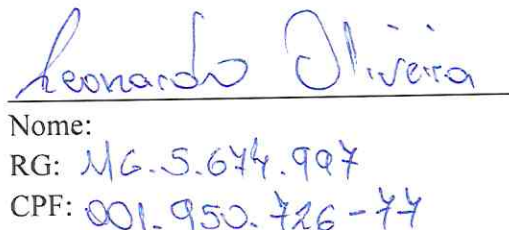 Leonardo Oliveira
Nome:
RG: MG.5.674.997
CPF: 001.950.726-77